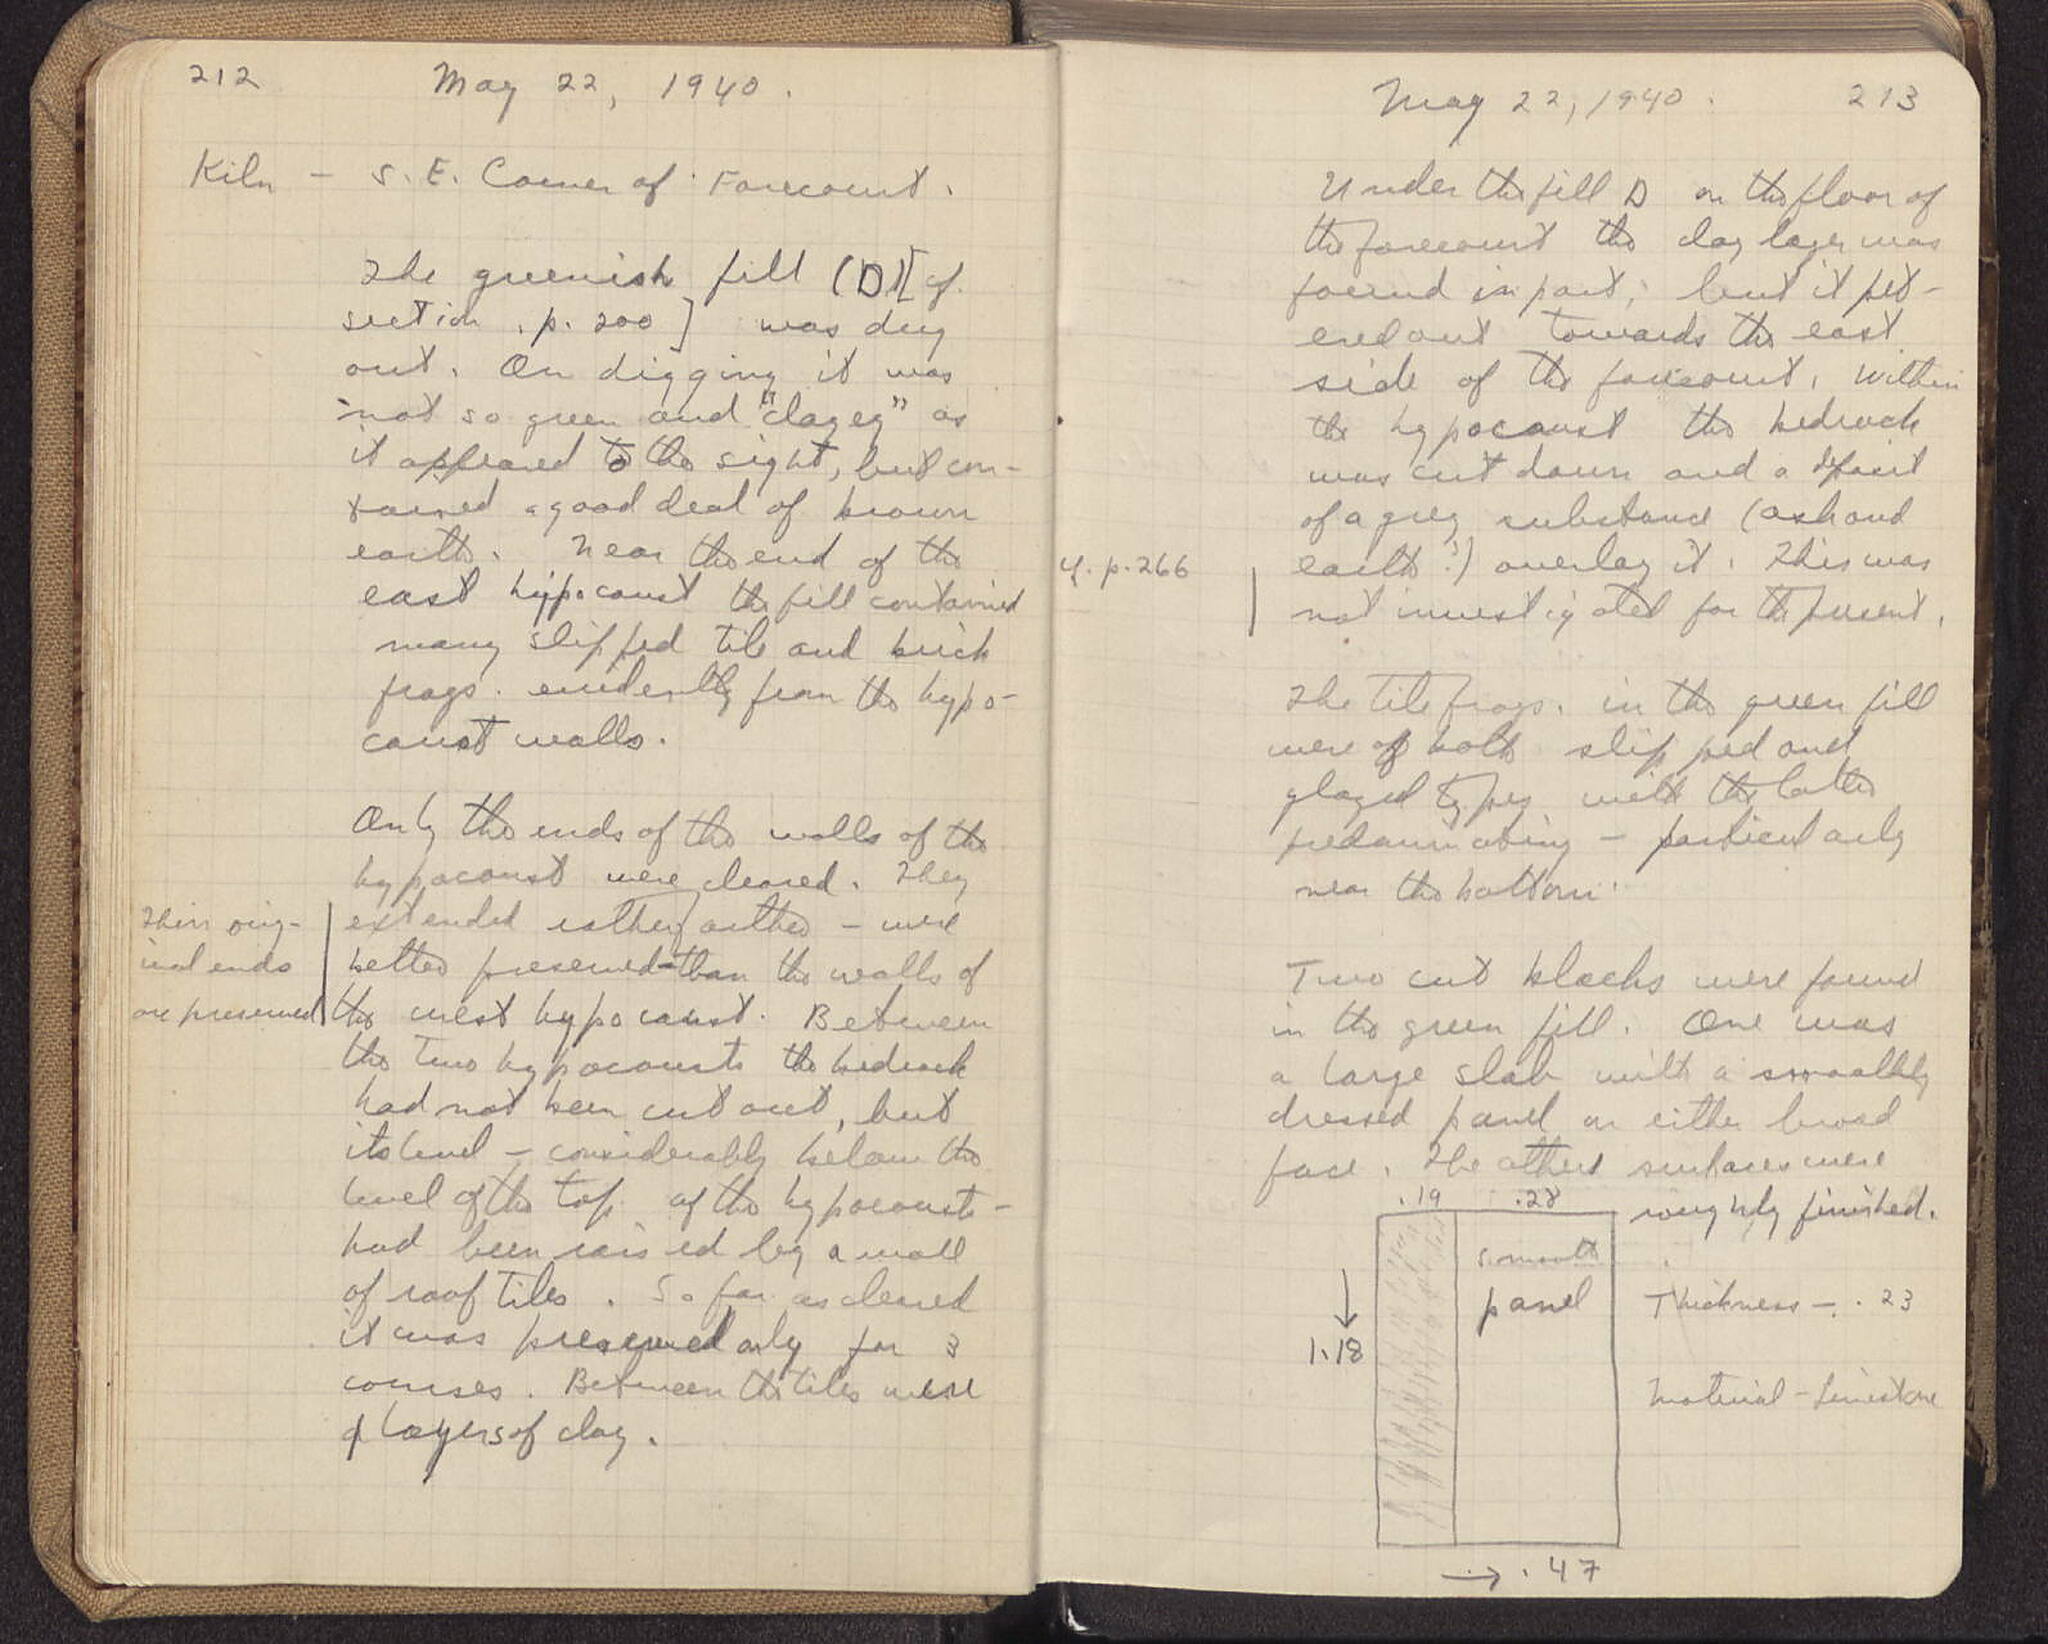 212
May 22, 1940.
Kiln - S. E. Corner of Forecourt.
The greenish fill (D) [cf.
section, p. 200] was dug
out. On digging it was
not so green and "clayey" as
it appeared to the sight, but con-
tained a good deal of brown
earth. Near the end of the
east hypocaust the fill contained
many slipped tile and brick
frags. evidently from the hypo-
caust walls.
Only the ends of the walls of the
hypocaust were cleared. They
extended rather farther - were
better preserved - than the walls of
the west hypocaust. Between
the two hypocausts the bedrock
had not been cut out, but
its level - considerably below the
level of the top of the hypocausts -
had been raised by a wall
of roof tiles. So far as cleared
it was preserved only for 3
courses. Between the tiles were
layers of clay.
Their orig-
inal ends
are preserved
May 22, 1940.
213
Under the fill D on the floor of
the forecourt the clay layer was
found in part; but it pet-
ered out towards the east
side of the forecourt. Within
the hypocaust the bedrock
was cut down and a deposit
of a grey substance (ash and
earth?) overlay it. This was
not investigated for the present.
cf. p. 266
The tile frags. in the green fill
were of both slipped and
glazed types with the latter
predominating - particularly
near the bottom.
Two cut blocks were found
in the green fill. One was
a large slab with a smoothly
dressed panel on either broad
face. The other surfaces were
roughly finished.
.19 .28
smooth
panel
1.18
Thickness - .23
Material - limestone
→ .47